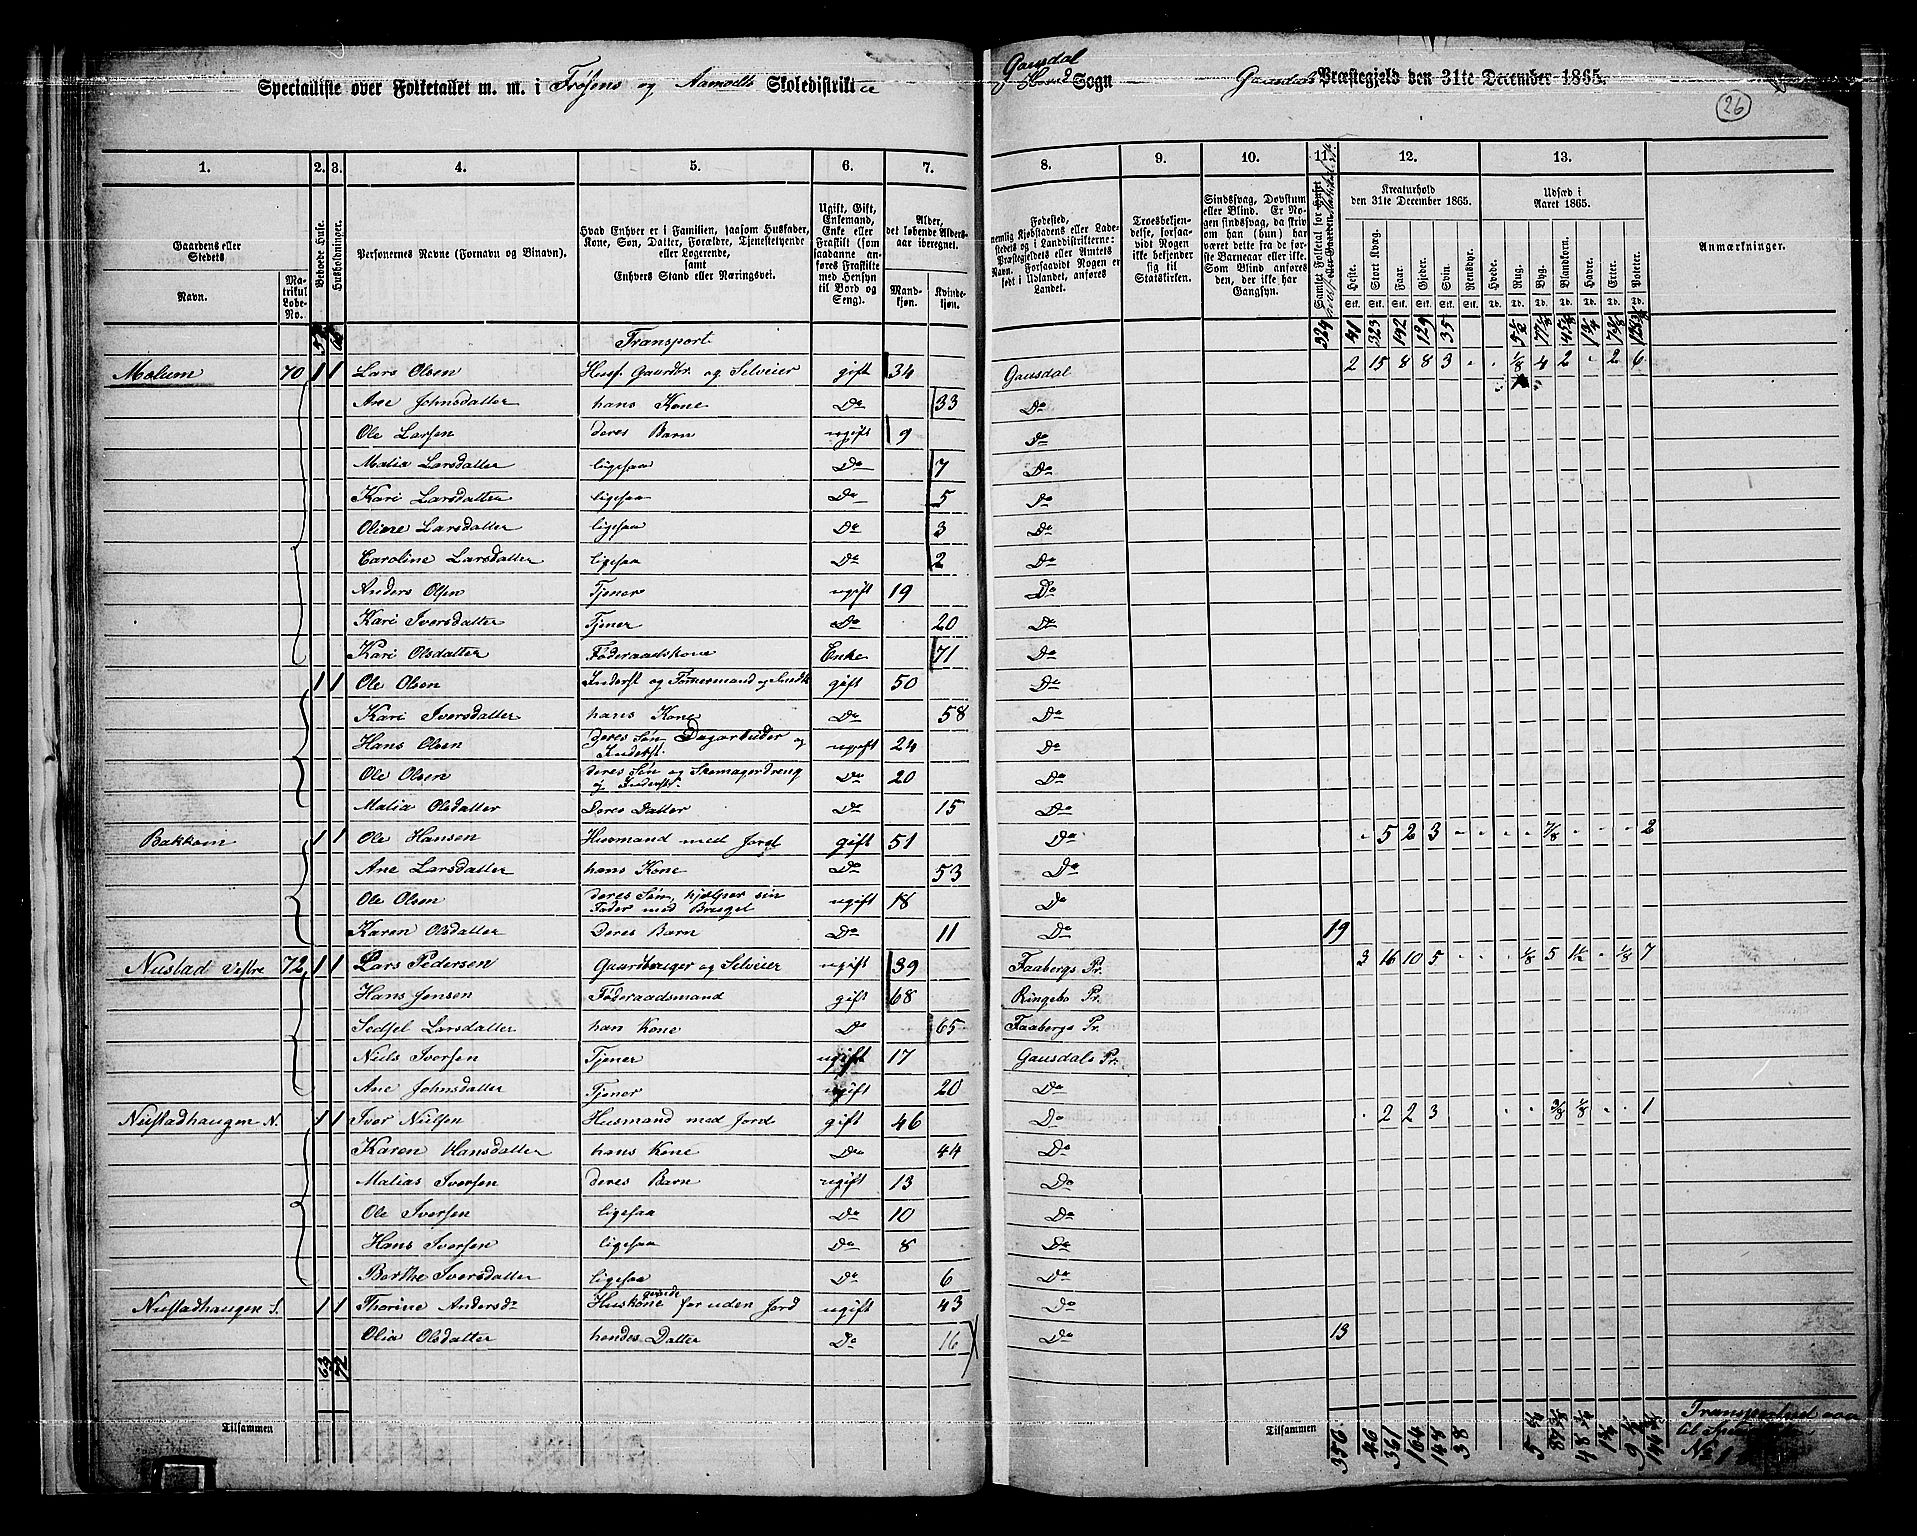 Specialliste over Folketallet m. m. i Frøsens og Aamodts Skoledistrikt
Gausdal
Sogn
Gausdals Præstegjeld den 31te December 1865.
26
1. 2. 3. 4. 5. 6. 7. 8. 9. 10. 11. 12. 13.
Gaardens eller Stedets Navn.
Matrikul Løbe-No.
Beboede Huse.
Husholdninger.
Personernes Navne (Fornavn og Binavn).
Hvad Enhver er i Familien, saasom Husfader, Kone, Søn, Datter, Forældre, Tjenestetyende eller Logerende, samt Enhvers Stand eller Næringsvei.
Ugift, Gift, Enkemand, Enke eller Fraskilt (som saadanne anføres Fraskilte med Hensyn til Bord og Seng).
Alder, det løbende Aldersaar iberegnet.
Mandkjøn. Kvindekjøn.
Fødested, nemlig Kjøbstadens eller Ladestedets og i Landdistrikterne: Præstegjeldets eller Amtets Navn. Forsaavidt Nogen er født i Udlandet, anføres Landet.
Troesbekjendelse, forsaavidt Nogen ikke bekjender sig til Statskirken.
Sindssvag, Døvstum eller Blind. Er Nogen sindssvag, da skriv om han (hun) har været dette fra de første Barneaar eller ikke. Som Blind anføres den, der ikke har Gangsyn.
Samlet Folketal for
Kreaturhold den 31te December 1865.
Heste. Stort Kvæg. Faar. Gjeder. Svin. Rensdyr.
Udsæd i Aaret 1865.
Hvede. Rug. Byg. Blandkorn. Havre. Erter. Poteter.
Anmærkninger.
Transport 324 41 323 142 129 35
Molum 70 1 1 Lars Olsen Husf. Gaardbr. og Selveier gift 34 Gausdal 2 15 8 8 3 - - 1/8 4 2 - 2 6
Ane Johnsdatter hans Kone Do 33 Do
Ole Larsen deres Barn ugift 9 Do
Malia Larsdatter ligesaa Do 7 Do
Kari Larsdatter ligesaa Do 5 Do
Oline Larsdatter ligesaa Do 3 Do
Caroline Larsdatter ligesaa Do 2 Do
Anders Olsen Tjener ugift 19 Do
Kari Iversdatter Tjener Do 20 Do
Kari Olsdatter Føderaadskone Enke 71 Do
1 1 Ole Olsen Inderst og Tømmermand og gift 50 Do
Kari Iversdatter hans Kone Do 58 Do
Hans Olsen deres Søn Dagarbeider og Inderst. ugift 24 Do
Ole Olsen deres Søn og Skomagerdreng og Inderst. Do 20 Do
Malia Olsdatter Deres Datter Do 15 Do
Bakken 1 1 Ole Hansen Husmand med Jord gift 51 Do - 5 2 3 - - - - 7/8 - - - 2
Ane Larsdatter hans Kone Do 53 Do
Ole Olsen deres Søn, hjælper sin Fader med Bruget ugift 18 Do
Karen Olsdatter Deres Barn Do 11 Do 19
Nustad Vestre 72 1 1 Lars Pedersen Gaardbruger og Selveier ugift 39 Faabergs Pr. 3 16 10 5 - - - 1/8 5 1½ - 1/8 7
Hans Jensen Føderaadsmand gift 68 Ringebo Pr.
Sedsel Larsdatter han Kone Do 65 Faabergs Pr.
Niels Iversen Tjener ugift 17 Gausdals Pr.
Ane Johnsdatter Tjener ugift 20 Do
Nustadhaugen N. 1 1 Iver Nielsen Husmand med Jord gift 46 Do - 2 2 3 - - 3/8 1/8 - - 1
Karen Hansdatter hans Kone Do 44 Do
Malias Iversen deres Barn ugift 13 Do
Ole Iversen ligesaa Do 10 Do
Hans Iversen ligesaa Do 8 Do
Berthe Iversdatter ligesaa Do 6 Do
Nustadhaugen S. 1 1 Thorine Andersdr Huskone for uden Jord ugift 43 Do
Olia Olsdatter hendes Datter Do 16 Do 13
63 72
Tilsammen
Tilsammen 356 46 361 164 148 38